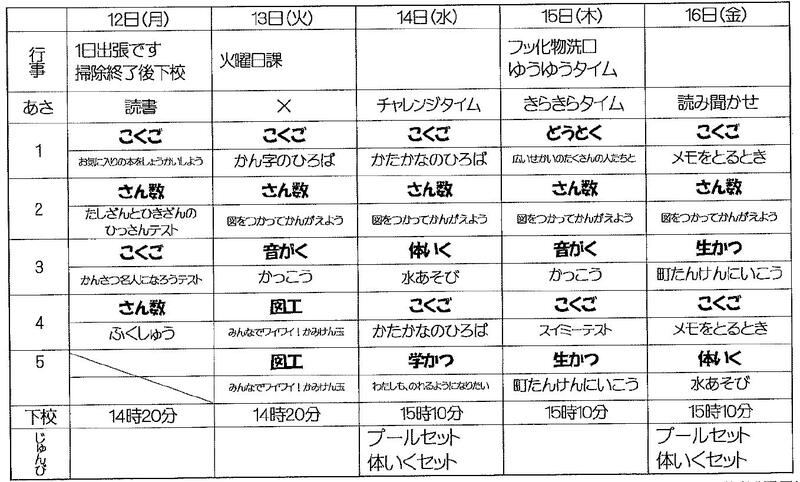 12日(月) 13日(火) 14日(水) 15日(木) 16日(金)
行事 1日出張です 掃除終了後下校 火曜日課 フッ化物洗口 ゆうゆうタイム
あさ 読書 × チャレンジタイム きらきらタイム 読み聞かせ
1 こくご こくご こくご どうとく こくご
お気に入りの本をしょうかいしよう かん字のひろば かたかなのひろば 広いせかいのたくさんの人たちと メモをとるとき
2 さん数 さん数 さん数 さん数 さん数
たしざんとひきざんの ひっさんテスト 図をつかってかんがえよう 図をつかってかんがえよう 図をつかってかんがえよう 図をつかってかんがえよう
3 こくご 音がく 体いく 音がく 生かつ
かんさつ名人になろうテスト かっこう 水あそび かっこう 町たんけんにいこう
4 さん数 図工 こくご こくご こくご
ふくしゅう みんなでワイワイ!かみけん玉 かたかなのひろば スイミーテスト メモをとるとき
5 図工 学かつ 生かつ 体いく
みんなでワイワイ!かみけん玉 わたしも、のれるようになりたい 町たんけんにいこう 水あそび
下校 14時20分 14時20分 15時10分 15時10分 15時10分
じゅんび プールセット 体いくセット プールセット 体いくセット